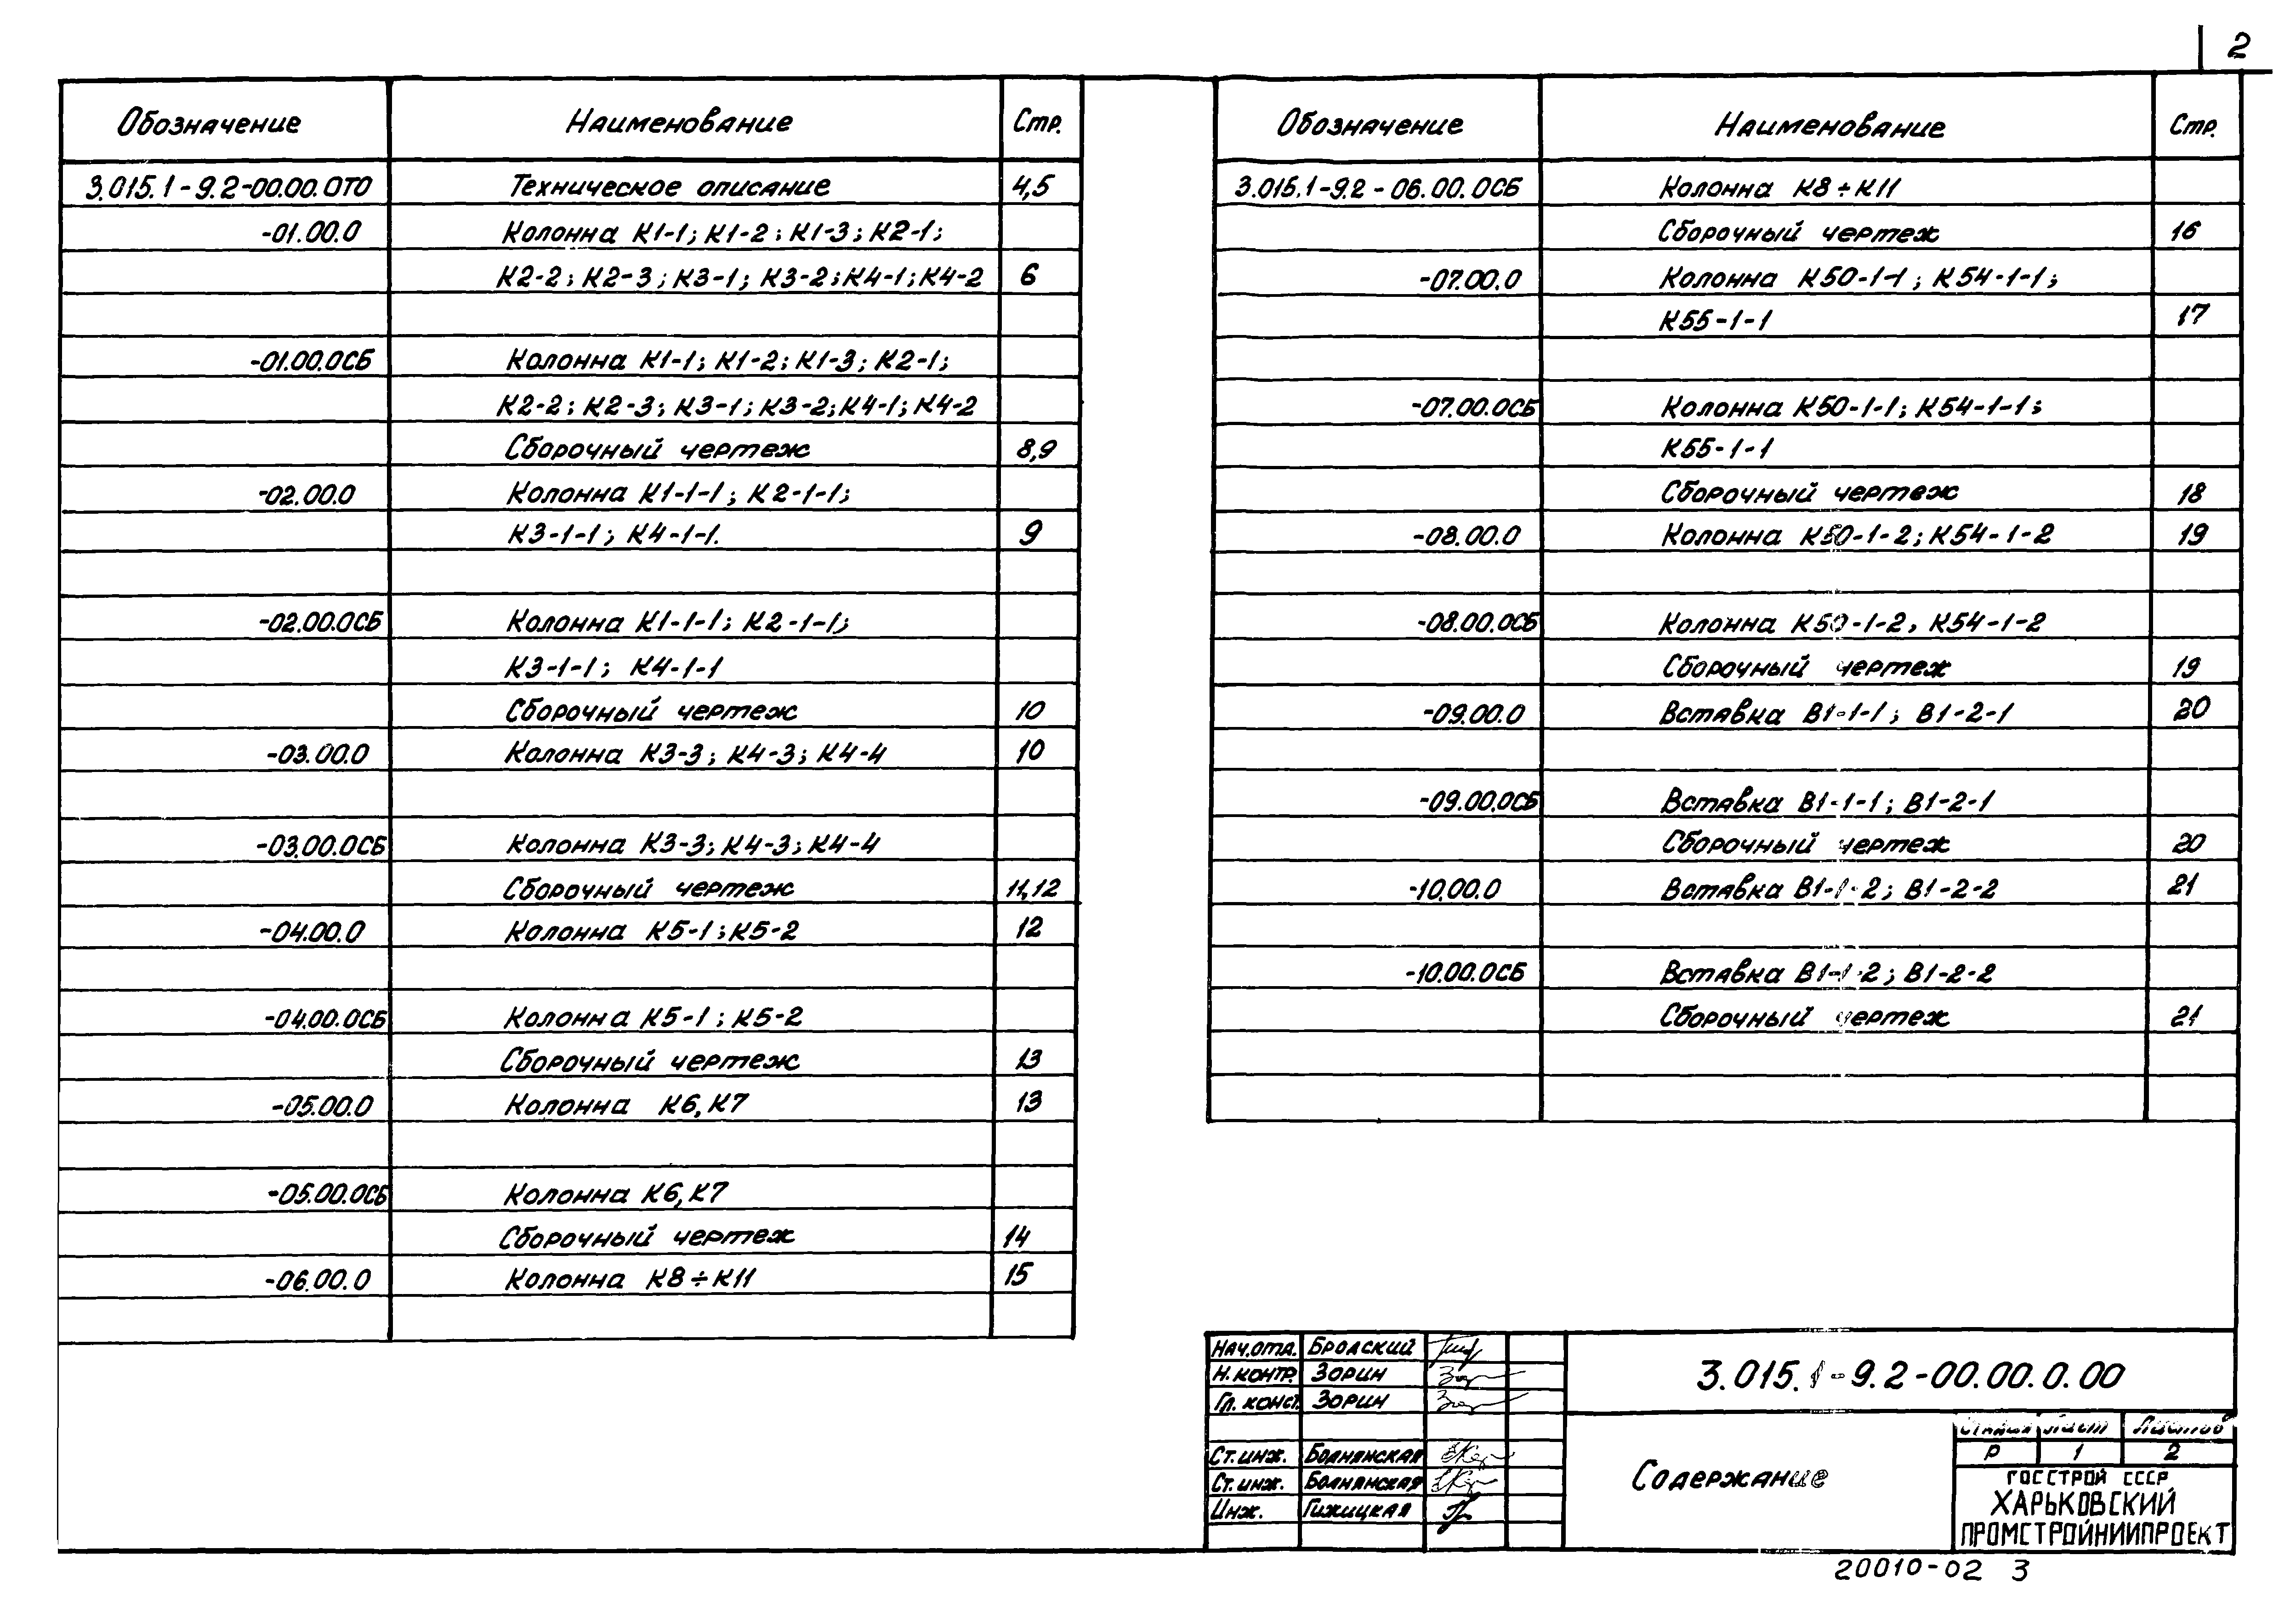 2
Обозначение Наименование Стр.
3.015.1-9.2-00.00.0ТО Техническое описание 4,5
-01.00.0 Колонна К1-1; К1-2; К1-3; К2-1;
К2-2; К2-3; К3-1; К3-2; К4-1; К4-2 6
-01.00.0СБ Колонна К1-1; К1-2; К1-3; К2-1;
К2-2; К2-3; К3-1; К3-2; К4-1; К4-2
Сборочный чертеж 8,9
-02.00.0 Колонна К1-1-1; К2-1-1;
К3-1-1; К4-1-1. 9
-02.00.0СБ Колонна К1-1-1; К2-1-1;
К3-1-1; К4-1-1
Сборочный чертеж 10
-03.00.0 Колонна К3-3; К4-3; К4-4 10
-03.00.0СБ Колонна К3-3; К4-3; К4-4
Сборочный чертеж 11,12
-04.00.0 Колонна К5-1; К5-2 12
-04.00.0СБ Колонна К5-1; К5-2
Сборочный чертеж 13
-05.00.0 Колонна К6, К7 13
-05.00.0СБ Колонна К6, К7
Сборочный чертеж 14
-06.00.0 Колонна К8÷К11 15
Обозначение Наименование Стр.
3.015.1-9.2-06.00.0СБ Колонна К8÷К11
Сборочный чертеж 16
-07.00.0 Колонна К50-1-1; К54-1-1;
К55-1-1 17
-07.00.0СБ Колонна К50-1-1; К54-1-1;
К55-1-1
Сборочный чертеж 18
-08.00.0 Колонна К50-1-2; К54-1-2 19
-08.00.0СБ Колонна К50-1-2, К54-1-2
Сборочный чертеж 19
-09.00.0 Вставка В1-1-1; В1-2-1 20
-09.00.0СБ Вставка В1-1-1; В1-2-1
Сборочный чертеж 20
-10.00.0 Вставка В1-1-2; В1-2-2 21
-10.00.0СБ Вставка В1-1-2; В1-2-2
Сборочный чертеж 21
Нач.отд. Бродский
Н.контр. Зорин
Гл. конст. Зорин
Ст. инж. Болнянская
Ст. инж. Болнянская
Инж. Гижицкая
3.015.1-9.2-00.00.0.00
Содержание
Стадия Лист Листов
Р 1 2
ГОССТРОЙ СССР
ХАРЬКОВСКИЙ
ПРОМСТРОЙНИИПРОЕКТ
20010-02 3